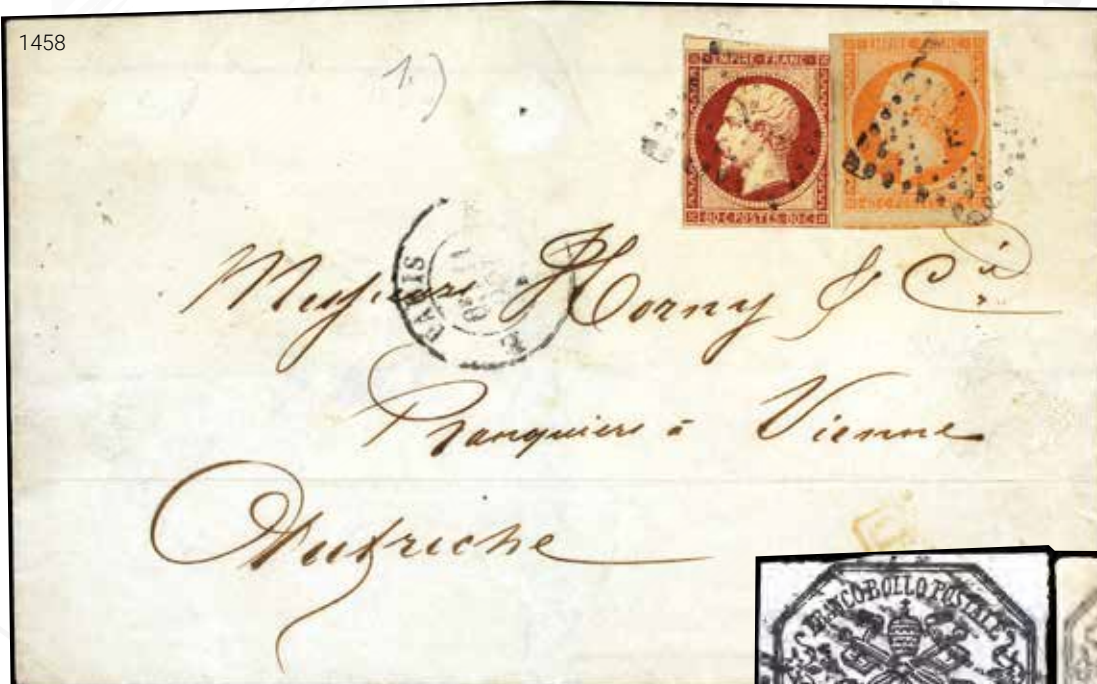 1458
1.)
EMPIRE FRANC
80 C POSTES 80 C
PARIS
Messieurs Horny & Cie
Banquiers à Vienne
Autriche
FRANCO BOLLO POSTALE